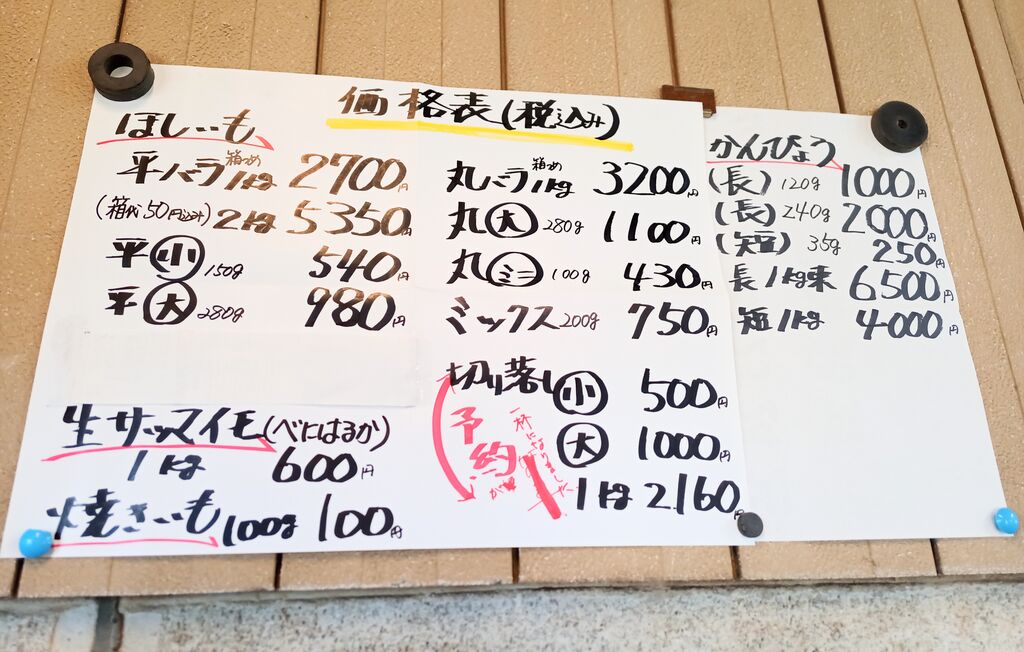 価格表(税込み)
ほしいも
平バラ 箱づめ 1kg 2700円
(箱代50円込み) 2kg 5350円
平小 150g 540円
平大 280g 980円
生サツマイモ(べにはるか)
1kg 600円
焼きいも 100g 100円
丸バラ 箱づめ 1kg 3200円
丸大 280g 1100円
丸ミニ 100g 430円
ミックス 200g 750円
切り落し 小 500円
大 1000円
1kg 2160円
予約が
一杯になりました
かんぴょう
(長) 120g 1000円
(長) 240g 2000円
(短) 35g 250円
長 1kg束 6500円
短 1kg 4000円